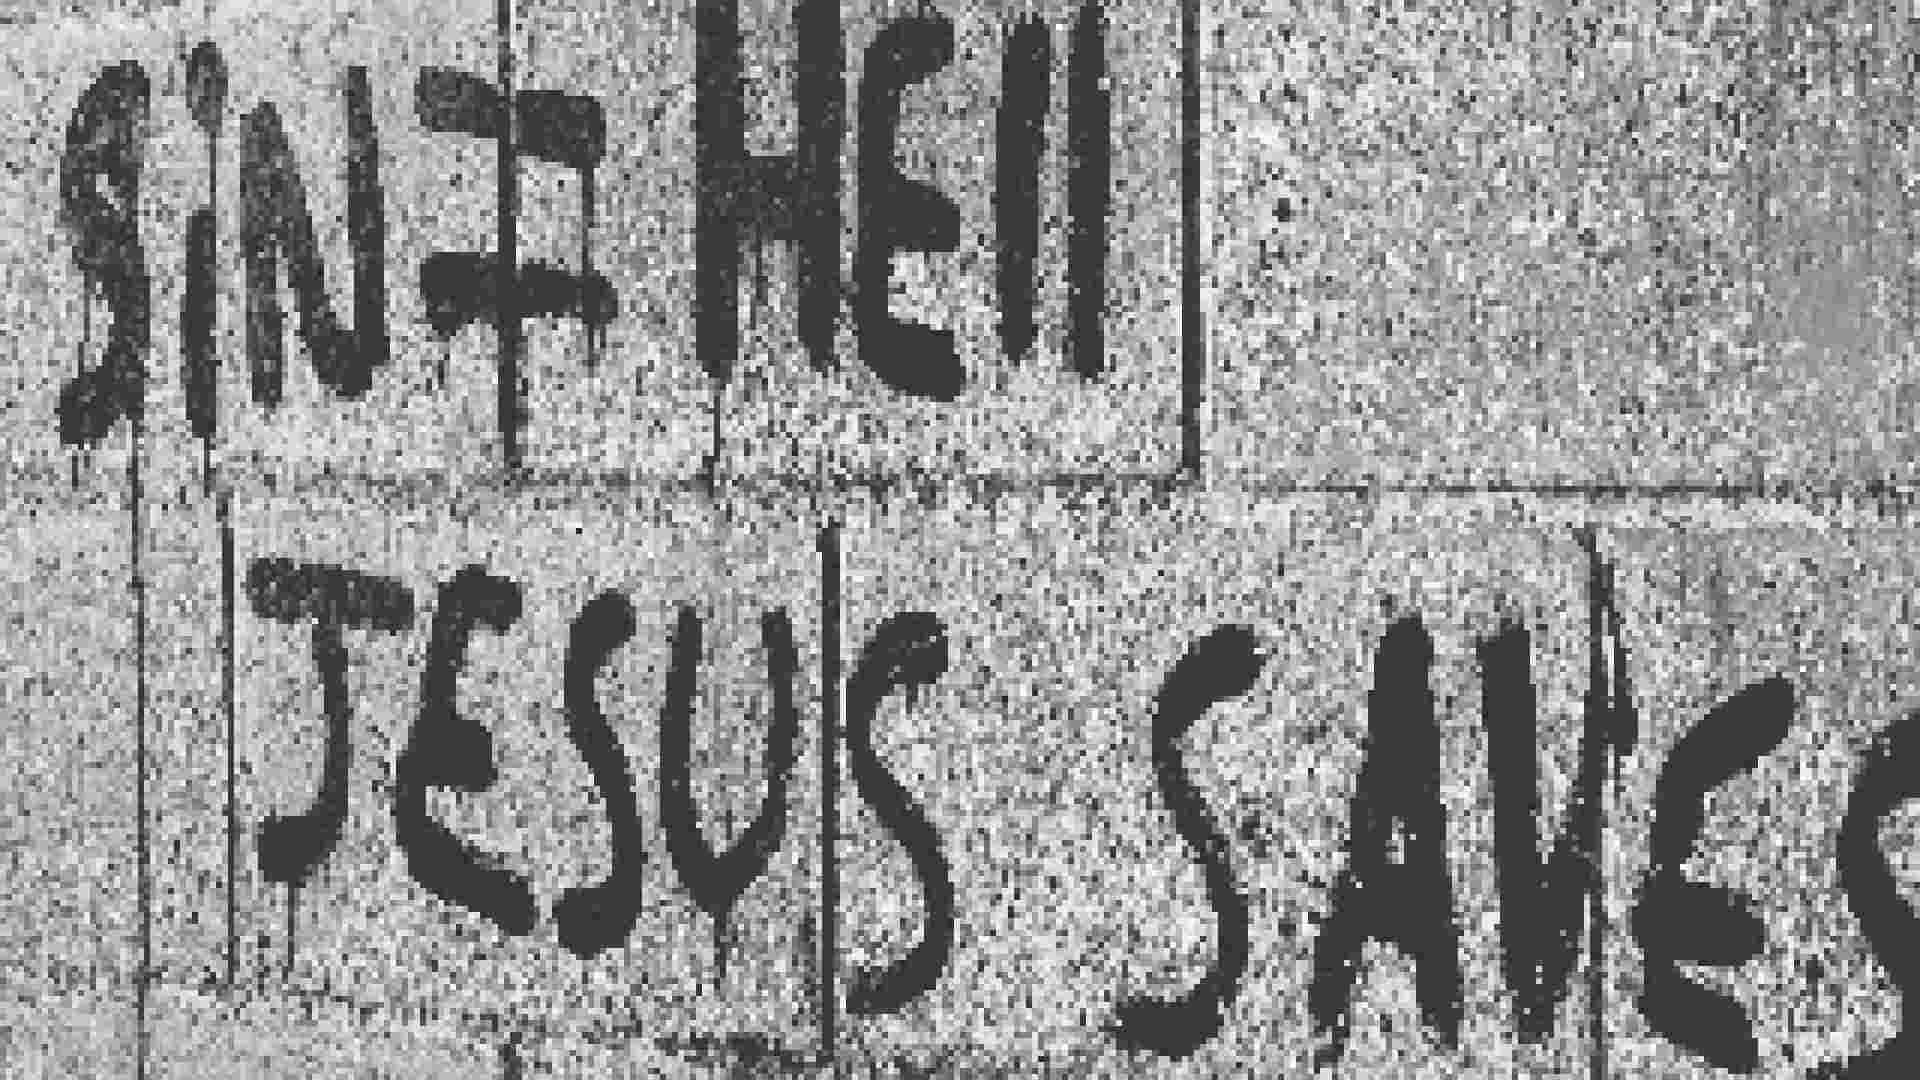 SiN = HEll
JESUS SAVES